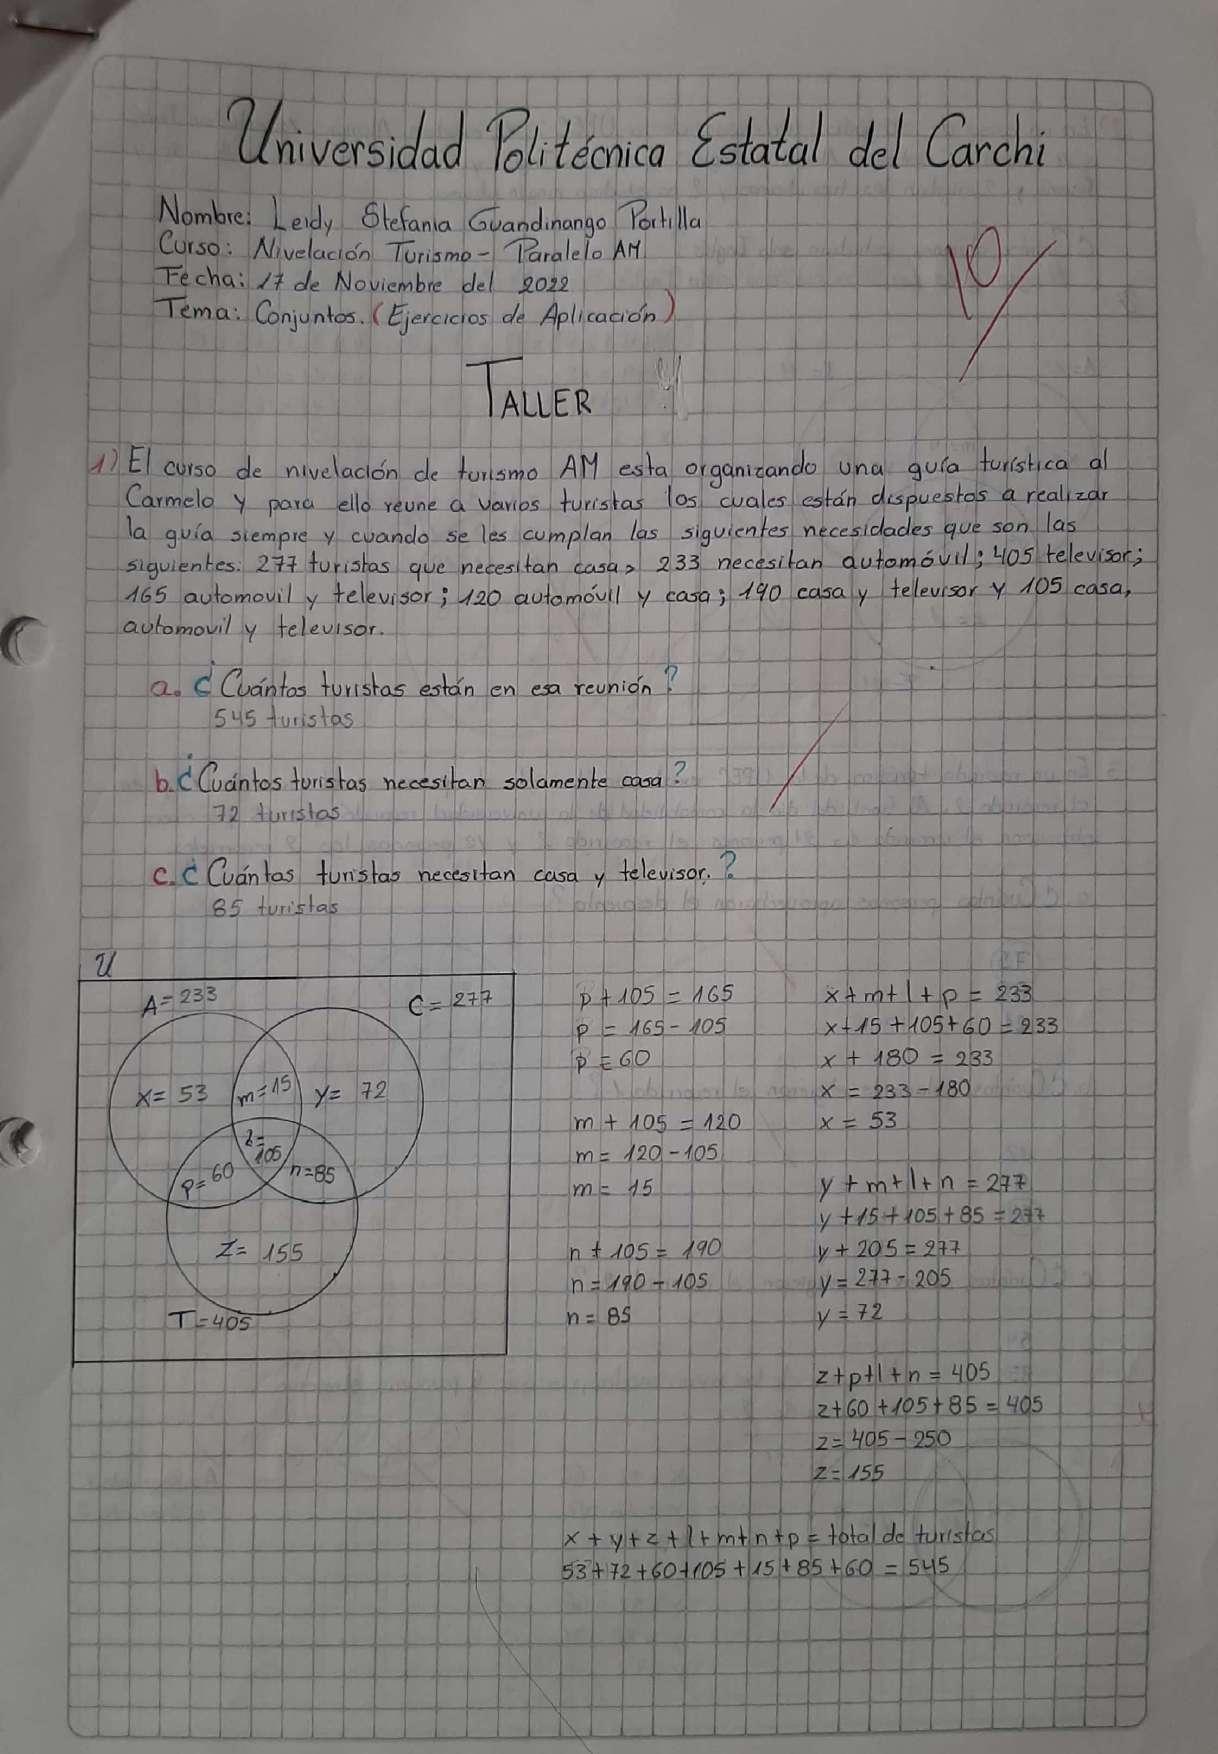 Universidad Politécnica Estatal del Carchi
Nombre: Leidy Stefania Guandinango Portilla
Curso: Nivelación Turismo - Paralelo AM
Fecha: 17 de Noviembre del 2022
Tema: Conjuntos. (Ejercicios de Aplicación)
10
TALLER
1) El curso de nivelación de turismo AM esta organizando una guía turística al
Carmelo y para ello reune a varios turistas los cuales están dispuestos a realizar
la guía siempre y cuando se les cumplan las siguientes necesidades que son las
siguientes: 277 turistas que necesitan casa, 233 necesitan automóvil; 405 televisor;
165 automovil y televisor; 120 automóvil y casa; 190 casa y televisor y 105 casa,
automovil y televisor.
a. ¿Cuántos turistas están en esa reunión?
545 turistas
b. ¿Cuántos turistas necesitan solamente casa?
72 turistas
c. ¿Cuántas turistas necesitan casa y televisor.?
85 turistas
U
A=233
C=277
x=53
m=15
y=72
l=105
p=60
n=85
z=155
T=405
p+105=165
p=165-105
p=60
m+105=120
m=120-105
m=15
n+105=190
n=190-105
n=85
x+m+l+p=233
x+15+105+60=233
x+180=233
x=233-180
x=53
y+m+l+n=277
y+15+105+85=277
y+205=277
y=277-205
y=72
z+p+l+n=405
z+60+105+85=405
z=405-250
z=155
x+y+z+l+m+n+p=total de turistas
53+72+60+105+15+85+60=545